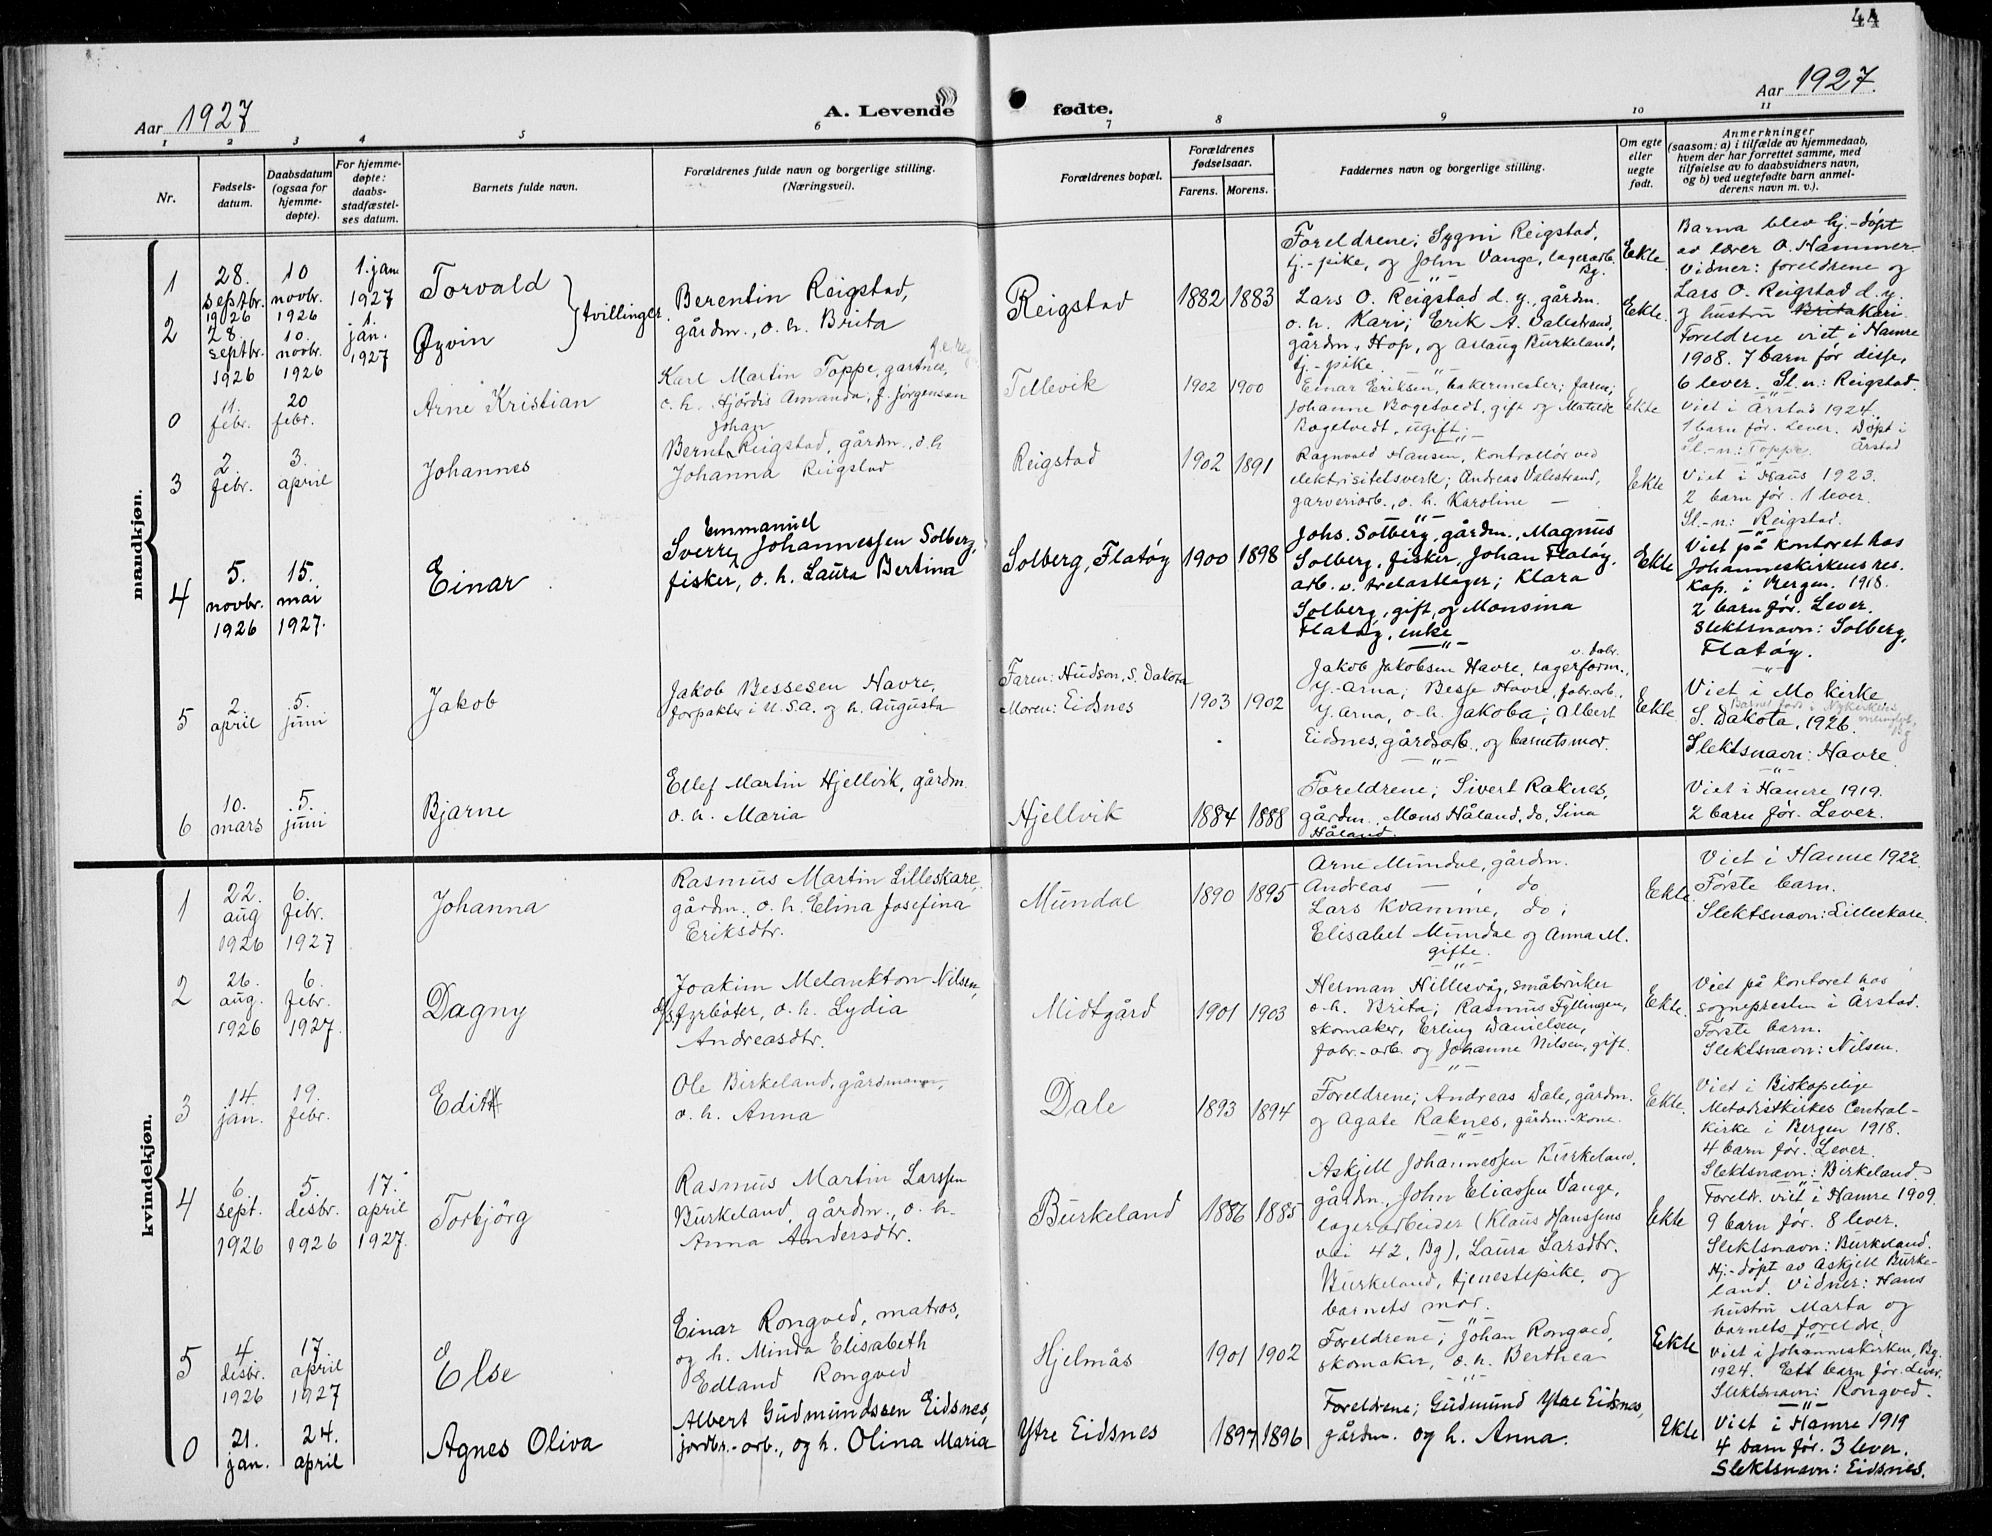 44
Aar 1927
A. Levende fødte.
Aar 1927.
1 2 3 4 5 6 7 8 9 10 11
Nr.
Fødsels-
datum.
Daabsdatum
(ogsaa for
hjemme-
døpte).
For hjemme-
døpte:
daabs-
stadfæstel-
ses datum.
Barnets fulde navn.
Forældrenes fulde navn og borgerlige stilling.
(Næringsvei).
Forældrenes bopæl.
Forældrenes
fødselsaar.
Farens. Morens.
Faddernes navn og borgerlige stilling.
Om egte
eller
uegte
født.
Anmerkninger
(saasom: a) i tilfælde av hjemmedaab,
hvem der har forrettet samme, med
tilføielse av to daabsvidners navn,
og b) ved uegtefødte barn anmel-
derens navn m. v.).
mandkjøn.
1
28.
septbr.
1926
10
novbr.
1926
1. jan
1927
Torvald
tvillinger
Berentin Reigstad,
gårdm., o. h. Brita
Reigstad
1882 1883
Foreldrene; Sygni Reigstad,
tj.-pike, og John Vange, lagerarb.
Bg.
Ekte
Barna blev hj.-døpt
av lærer O. Hammer.
Vidner: foreldrene og
Lars O. Reigstad d. y.
og hustru Brita Kari.
2
28.
septbr.
1926
10.
novbr.
1926
1.
jan.
1927
Øyvin
Lars O. Reigstad d. y., gårdm.
o. h. Kari; Erik A. Valestrand,
gårdm., Hop, og Aslaug Burkeland,
tj.-pike.
Ekte.
Foreldrene viet i Hamre
1908. 7 barn før disse,
6 lever. Sl. n.: Reigstad.
0
11.
febr.
20
febr.
Arne Kristian
Karl Martin Toppe, gartner,
o. h. Hjördis Amanda, f. Jörgensen
Tellevik
1902 1900
Einar Eriksen, bakermester; faren;
Johanne Bogetvedt, gift og Matilde
Bogetvedt, ugift.
Ekte
Viet i Årstad 1924.
1 barn før. Lever. Døpt i
Sl.-n.: Toppe. Årstad
3
2
febr.
3.
april
Johannes
Johan
Bernt Reigstad, gårdm., o. h
Johanna Reigstad
Reigstad
1902 1891
Ragnvald Hansen, kontrollør ved
elektrisitetsverk; Andreas Valestrand,
garveriarb., o. h. Karoline —
Ekte
Viet i Haus 1923.
2 barn før. 1 lever.
Sl.-n: Reigstad.
4
5.
novbr.
1926
15.
mai
1927.
Einar
Emmanuel
Sverre Johannessen Solberg,
fisker, o. h. Laura Bertina
Solberg, Flatøy
1900 1898
Johs. Solberg, gårdm., Magnus
Solberg, fisker, Johan Flatøy,
arb. v. trelastlager; Klara
Solberg, gift, og Monsina
Flatøy, enke
Ekte
Viet på kontoret hos
Johanneskirkens res.
kap. i Bergen. 1918.
2 barn før. Lever.
Slektsnavn: Solberg,
Flatøy.
5
2
april
5.
juni
Jakob
Jakob Bessesen Havre,
forpakter i U.S.A. og h. Augusta
Faren: Hudson, S. Dakota
Moren: Eidsnes
1903 1902
v. fabr.
Jakob Jakobsen Havre, lagerform.,
Y.-Arna; Besse Havre, fabr.arb.,
Y. Arna, o. h. Jakoba; Albert
Eidsnes, gårdsarb., og barnets mor.
Ekte
Viet i Mo kirke
S. Dakota, 1926.
Slektsnavn: Havre.
6
10.
mars
5.
juni
Bjarne
Ellef Martin Hjellvik, gårdm.
o. h. Maria
Hjellvik
1884 1888
Foreldrene; Sivert Raknes,
gårdm. Mons Håland, do, Sina
Håland.
Viet i Hamre 1919.
2 barn før. Lever.
kvindekjøn.
1
22.
aug
1926
6.
febr.
1927
Johanna
Rasmus Martin Lilleskare,
gårdm., o. h. Elina Josefina
Eriksdtr.
Mundal
1890 1895
Arne Mundal, gårdm.
Andreas — , do
Lars Kvamme, do;
Elisabet Mundal og Anna M.
gifte.
Ekte.
Viet i Hamre 1922.
Første barn.
Slektsnavn: Lilleskare.
2
26.
aug.
1926
6.
febr.
1927.
Dagny
Joakim Melankton Nilsen,
fyrbøter, o. h. Lydia
Andreasdtr.
Midtgård
1901 1903
Herman Hillesvåg, småbruker
o. h. Brita; Rasmus Fyllingen,
skomaker, Erling Danielsen,
fabr.-arb. og Johanne Nilsen, gift.
Ekte.
Viet på kontoret hos
sognepresten i Årstad.
Første barn.
Slektsnavn: Nilsen.
3
14.
jan.
19.
febr.
Edith
Ole Birkeland, gårdmann,
o. h. Anna
Dale
1893 1894
Foreldrene; Andreas Dale, gårdm.
og Agate Raknes, gårdm.-kone.
Ekte.
Viet i Biskopelige
Metodistkirkes Central-
kirke i Bergen 1918.
4 barn før. Lever.
Slektsnavn: Birkeland.
4
6
sept.
1926
5
disbr.
1926
17.
april
1927.
Torbjörg
Rasmus Martin Larssen
Burkeland, gårdm., o. h.
Anna Andersdtr.
Burkeland
1886 1885
Askjell Johannessen Burkeland,
gårdm., John Eliassen Vange,
lagerarbeider (Klaus Hanssens
vei 42, Bg), Laura Larsdtr.
Burkeland, tjenestepike, og
barnets mor.
Ekte
Foreldr. viet i Hamre 1909.
9 barn før. 8 lever.
Slektsnavn: Burkeland.
Hj.-døpt av Askjell Burke-
land. Vidner: Hans
hustru Marta og
barnets foreldre.
5
4
disbr.
1926
17
april
1927
Else
Einar Rongved, matros,
og h. Minda Elisabeth
Edland Rongved
Hjelmås
1901 1902
Foreldrene; Johan Rongved,
skomaker, o. h. Berthea
Ekte
Viet i Johanneskirken, Bg.
1924. Ett barn før. Lever.
Slektsnavn: Rongved.
0
21.
jan.
24.
april
Agnes Oliva
Albert Gudmundsen Eidsnes,
jordbr.-arb., og h. Olina Maria
Ytre Eidsnes
1897 1896
Foreldrene; Gudmund Ytre Eidsnes,
gårdm. og h. Anna.
Ekte
Viet i Hamre 1919
4 barn før. 3 lever.
Slektsnavn: Eidsnes.